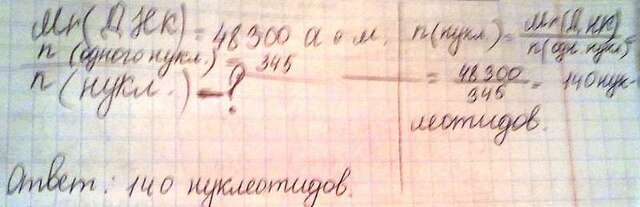 Mr(ДНК) = 48300 а.е.м.
n(одного нукл.) = 345
n(нукл.) - ?
n(нукл.) = Mr(ДНК) / n(одн. нукл) =
= 48300 / 345 = 140 нук-
леотидов.
Ответ: 140 нуклеотидов.